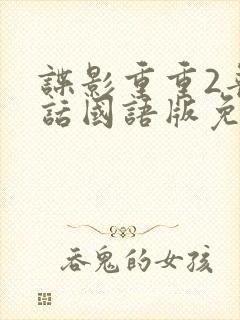 諜影重重2
話國語版免
吞鬼的女孩